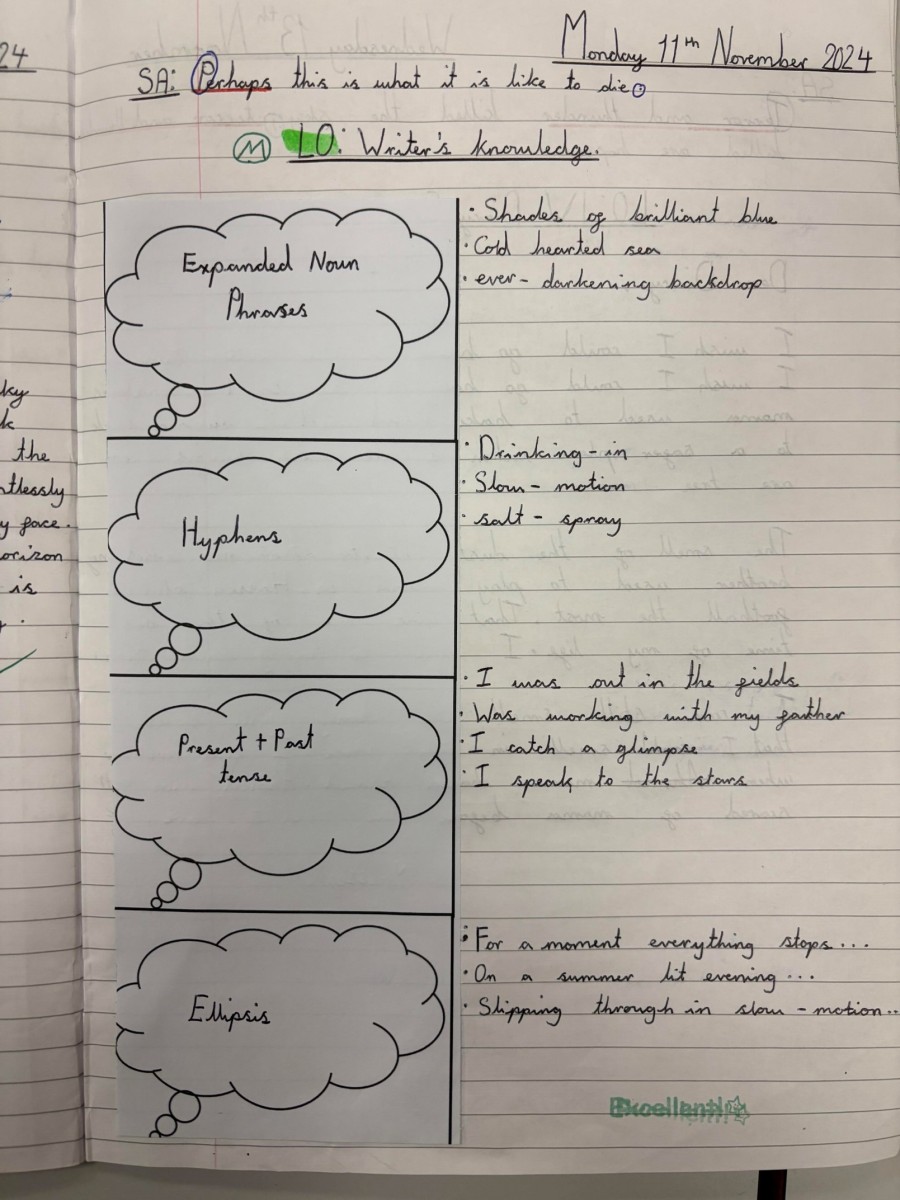 24
Monday 11th November 2024
SA: Perhaps this is what it is like to die.
M LO: Writer's knowledge.
Expanded Noun
Phrases
• Shades of brilliant blue
• Cold hearted sea
• ever-darkening backdrop
Hyphens
• Drinking-in
• Slow-motion
• salt-spray
Present + Past
tense
• I was out in the fields
• Was working with my father
• I catch a glimpse
• I speak to the stars
Ellipsis
• For a moment everything stops...
• On a summer lit evening...
• Slipping through in slow-motion..
Excellent!
ky
k
the
ntlessly
y face.
orizon
is